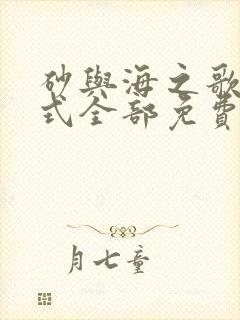 砂與海之歌
式全部免費
月七童